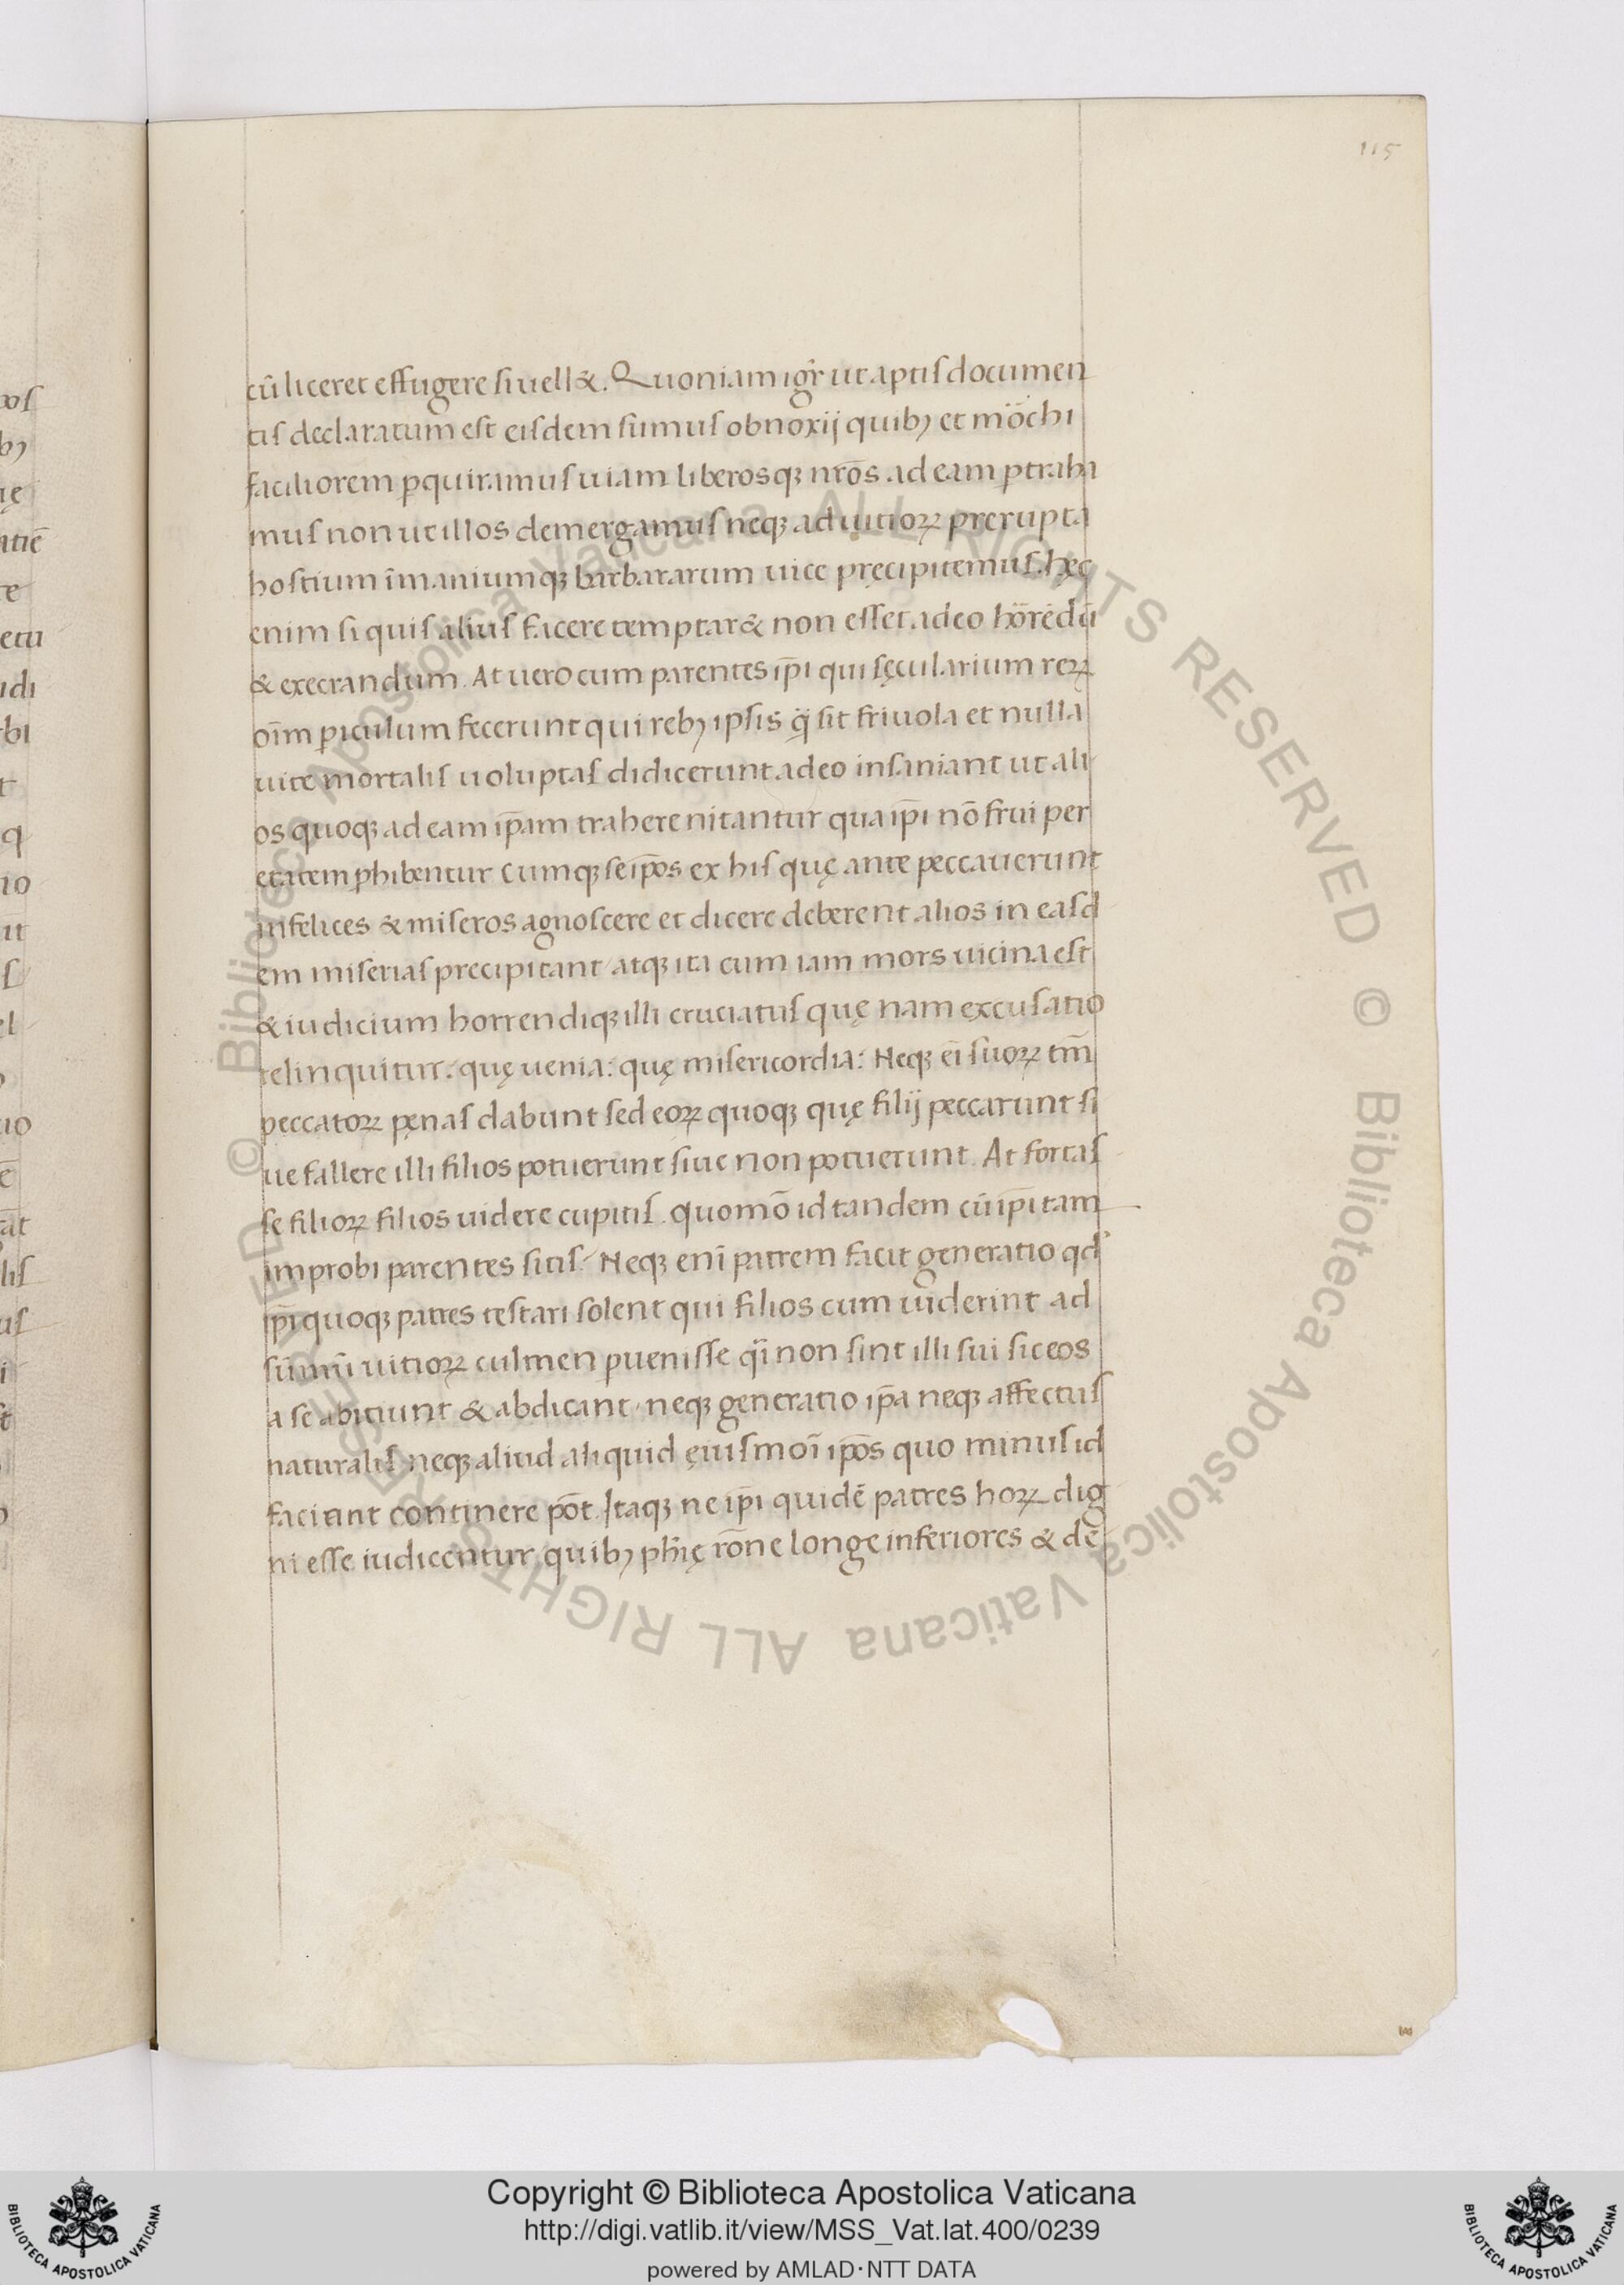 115
cū liceret effugere si uell&. Quoniam igr̄ ut aptis documen
tis declaratum est eisdem sumus obnoxij quibꝫ et mōchi
faciliorem ꝑquiramus uiam liberosqꝫ nr̄os ad eam ꝑtraha
mus non ut illos demergamus neqꝫ ad uitioꝝ prerupta
hostium īmaniumqꝫ barbararum uice pręcipitemus. hęc
enim si quis alius facere temptar& non esset adeo hōrēdū
& execrandum. At uero cum parentes ip̄i qui sęcularium reꝝ
oīm ꝑiculum fecerunt qui rebꝫ ipsis q̄ sit friuola et nulla
uite mortalis uoluptas didicerunt adeo insaniant ut ali
os quoqꝫ ad eam ip̄am trahere nitantur qua ip̄i nō frui per
etatem ꝓhibentur cumqꝫ seip̄os ex his quę ante peccauerunt
infelices & miseros agnoscere et dicere deberent alios in easd
em miserias precipitant atqꝫ ita cum iam mors uicina est
& iudicium horrendiqꝫ illi cruciatus quę nam excusatio
relinquitur: quę uenia: quę misericordia: Neqꝫ eī suoꝝ tm̄
peccatoꝝ pęnas dabunt sed eoꝝ quoqꝫ quę filij peccarunt si
ue fallere illi filios potuerunt siue non potuerunt. At fortas
se filioꝝ filios uidere cupitis. quomō id tandem cū ip̄i tam
improbi parentes sitis: Neqꝫ enī patrem facit generatio qd'
ip̄i quoqꝫ patres testari solent qui filios cum uiderint ad
sūmū uitioꝝ culmen ꝑuenisse q̄i non sint illi sui sic eos
a se abiciunt & abdicant. neqꝫ generatio ip̄a neqꝫ affectus
naturalis neqꝫ aliud aliquid ęiusmoī ip̄os quo minus id
faciant continere pōt. Itaqꝫ ne ip̄i quidē patres hoꝝ dig
ni esse iudicentur quibꝫ ph̄ię rōne longe inferiores & dē
© Biblioteca Apostolica Vaticana ALL RIGHTS RESERVED © Biblioteca Apostolica Vaticana ALL RIGHTS RESERVED
Copyright © Biblioteca Apostolica Vaticana
http://digi.vatlib.it/view/MSS_Vat.lat.400/0239
powered by AMLAD·NTT DATA
BIBLIOTECA APOSTOLICA VATICANA
BIBLIOTECA APOSTOLICA VATICANA